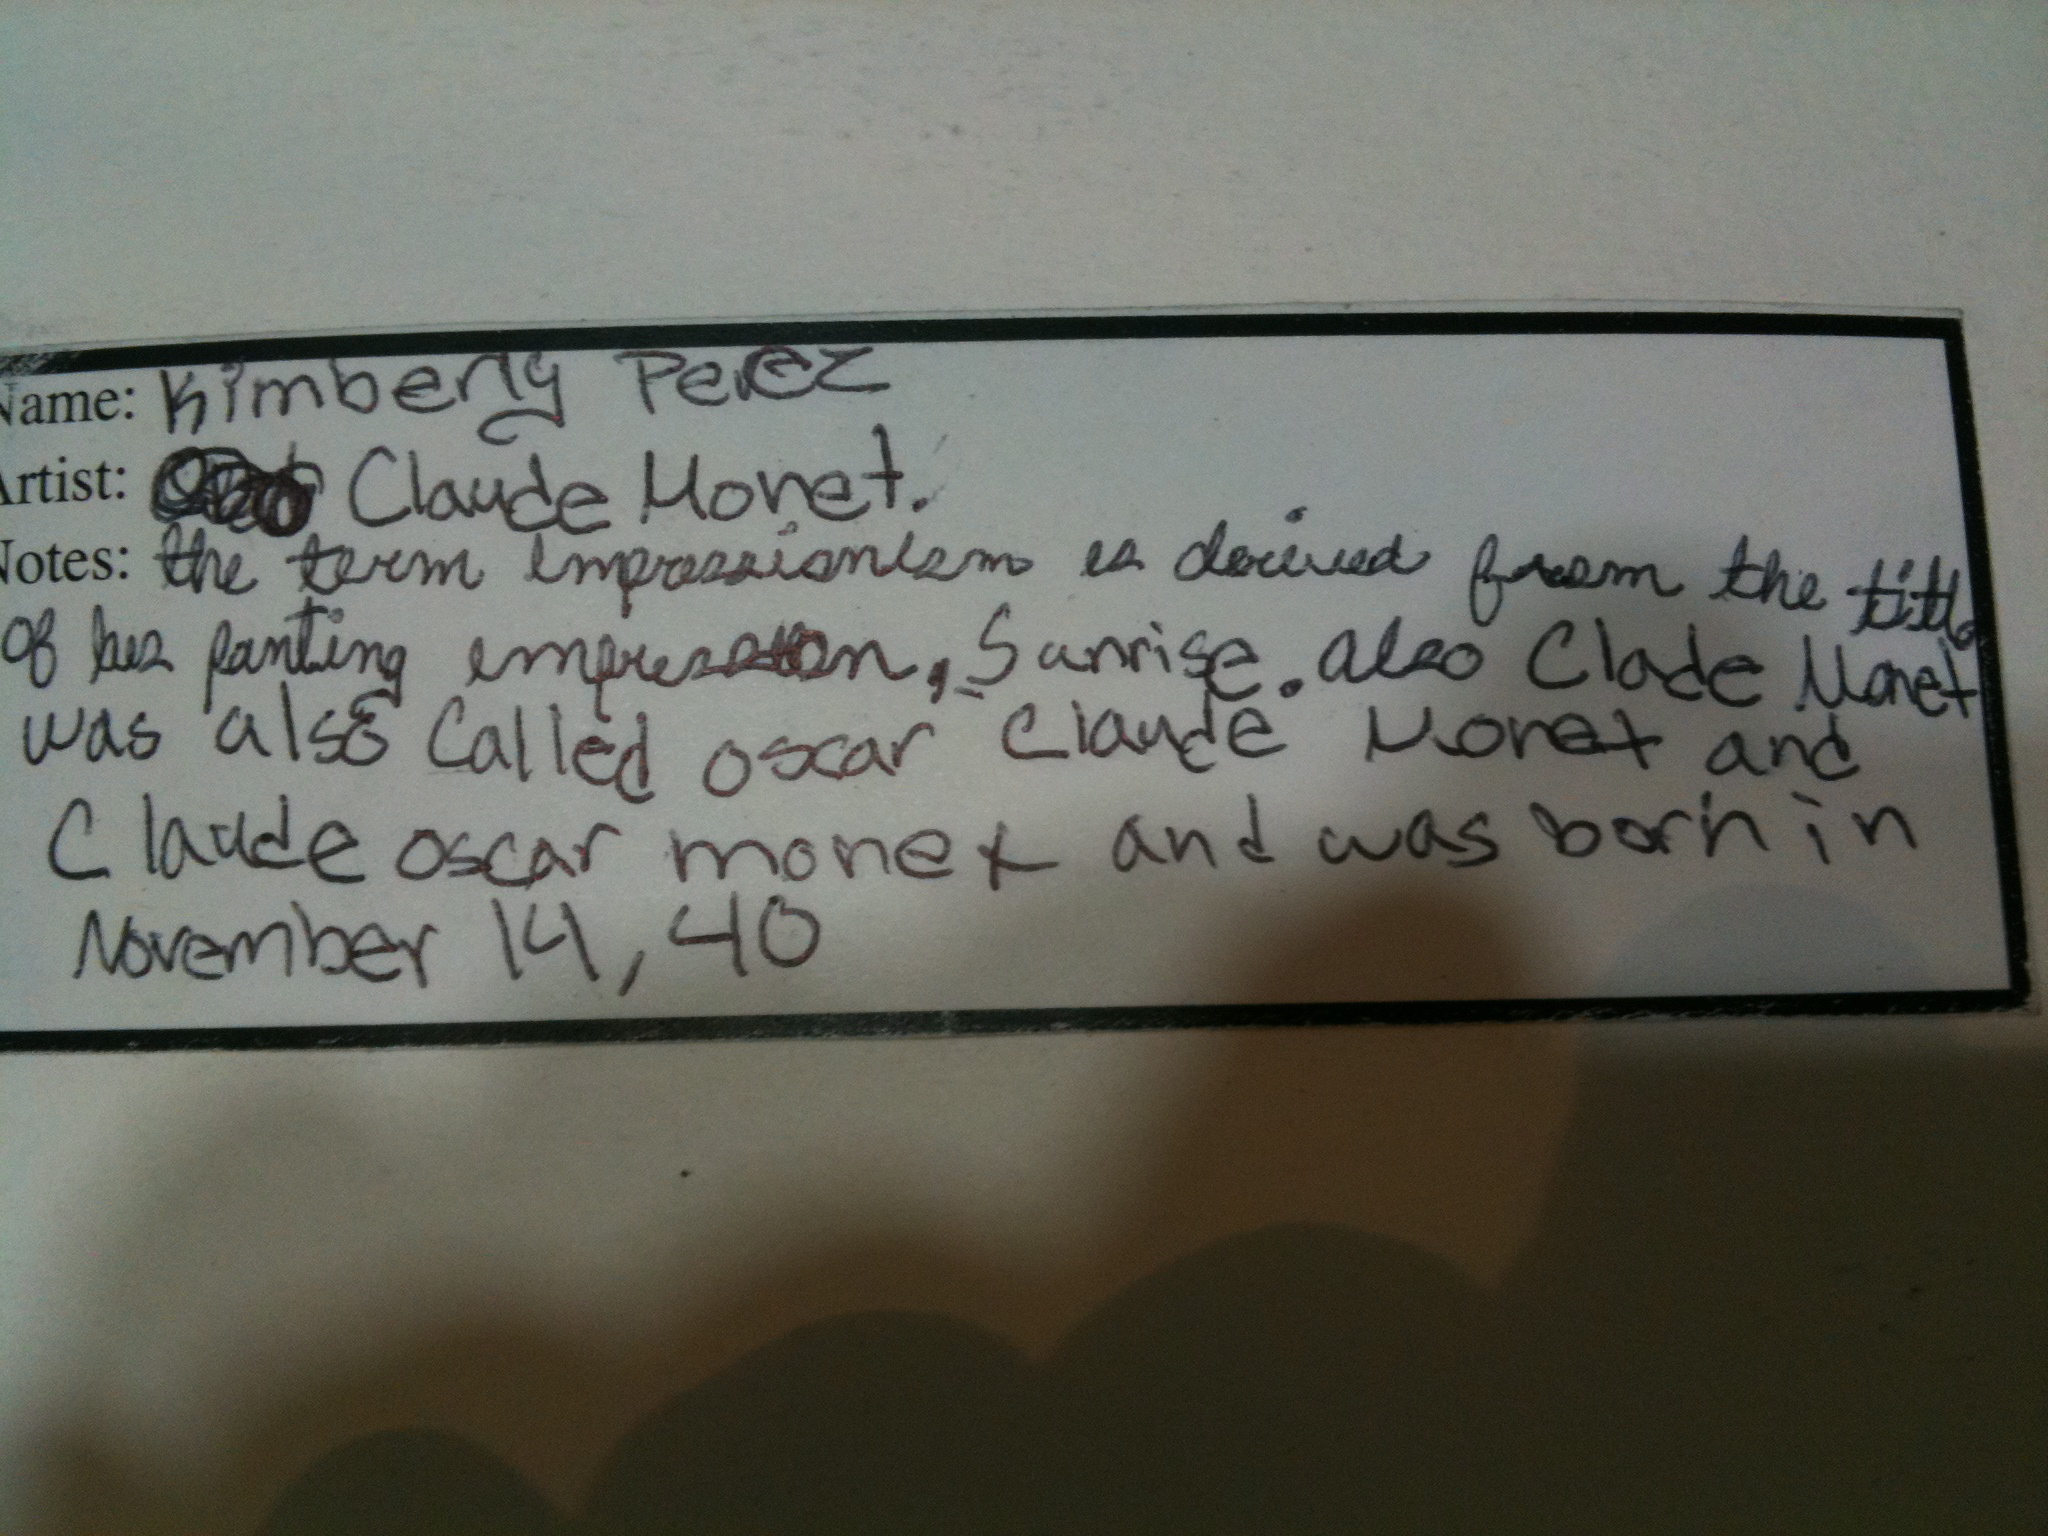 Name: Kimberly Perez
Artist: Claude Monet.
Notes: the term impressionism is derived from the title
of his panting impression, Sunrise. also Clade Monet
was also called oscar Claude Monet and
Claude oscar monet and was born in
November 14, 40